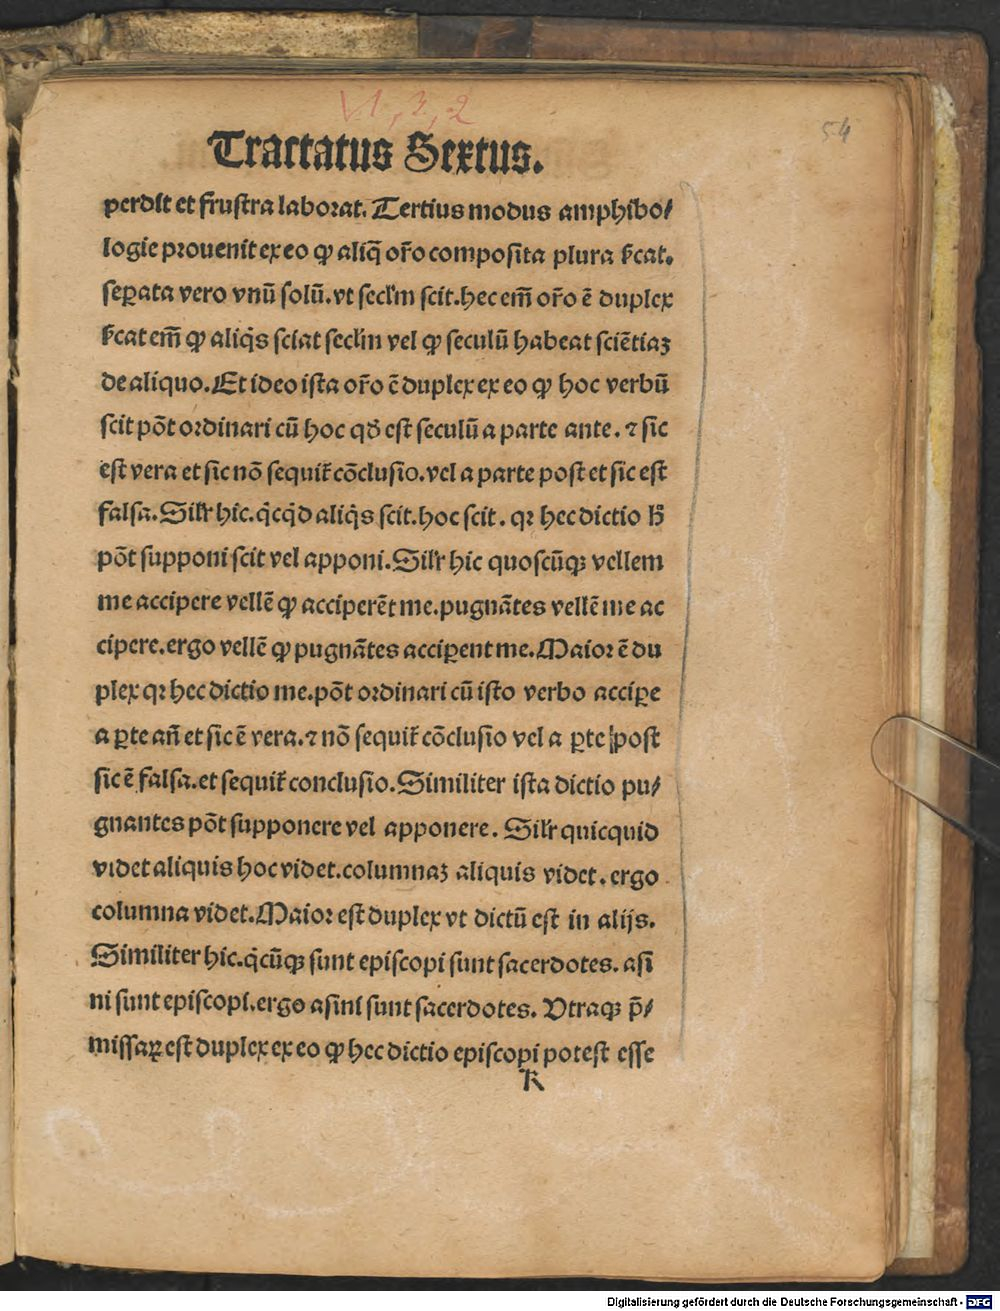 VI, 3, 2
54
Tractatus Sextus.
perdit et frustra laborat. Tertius modus amphibo⸗
logie prouenit ex eo ꝙ aliq̄ or̄o composita plura ſ̄cat.
seꝑata vero vnū solū. vt secl̄m scit. hec em̄ or̄o ē duplex
ſ̄cat em̄ ꝙ aliq̇s sciat secl̄m vel ꝙ seculū habeat sciētiaꝫ
de aliquo. Et ideo ista or̄o ē duplex ex eo ꝙ hoc verbū
scit pōt ordinari cū hoc qd̄ est seculū a parte ante. ⁊ sic
est vera et sic nō sequit̄ cōclusio. vel a parte post et sic est
falsa. Sil̄r hic. q̇cq̇d aliq̇s scit. hoc scit. qꝛ hec dictio h̄
pōt supponi scit vel apponi. Sil̄r hic quoscūqꝫ vellem
me accipere vellē ꝙ acciperēt me. pugnātes vellē me ac
cipere. ergo vellē ꝙ pugnātes acciꝑent me. Maior ē du
plex qꝛ hec dictio me. pōt ordinari cū isto verbo acciꝑe
a ꝑte an̄ et sic ē vera. ⁊ nō sequit̄ cōclusio vel a ꝑte post
sic ē falsa. et sequit̄ conclusio. Similiter ista dictio pu⸗
gnantes pōt supponere vel apponere. Sil̄r quicquid
videt aliquis hoc videt. columnaꝫ aliquis videt. ergo
columna videt. Maior est duplex vt dictū est in alijs.
Similiter hic. q̇cūqꝫ sunt episcopi sunt sacerdotes. asi
ni sunt episcopi. ergo asini sunt sacerdotes. Vtraqꝫ p̄⸗
missaꝝ est duplex ex eo ꝙ hec dictio episcopi potest esse
K
Digitalisierung gefördert durch die Deutsche Forschungsgemeinschaft - DFG